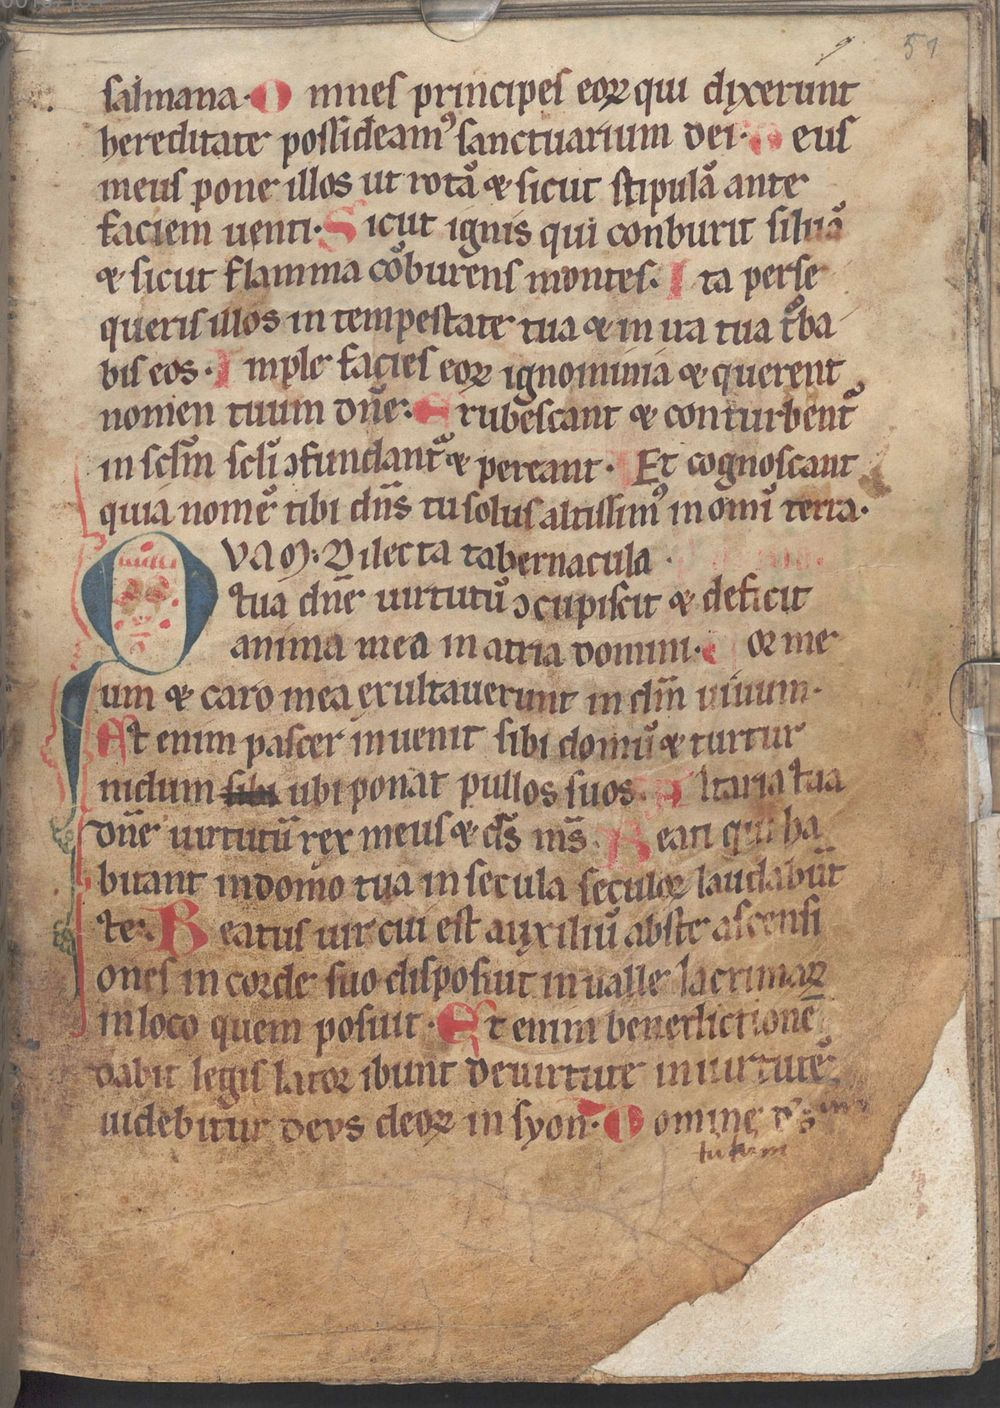 51
salmana. Omnes principes eoꝝ qui dixerunt
hereditate possideamꝰ sanctuarium dei. Deus
meus pone illos ut rotā & sicut stipulā ante
faciem uenti. Sicut ignis qui conburit siluā
& sicut flamma cōburens montes. Ita perse
queris illos in tempestate tua & in ira tua tᵒba
bis eos. Imple facies eoꝝ ignominia & querent
nomen tuum dn̄e. Erubescant & conturbent᷑
in sclm̄ scl̄i ɔfundant᷑ & pereant. Et cognoscant
quia nomē tibi dn̄s tu solus altissimꝰ in omī terra.
QVAM: Dilecta tabernacula
tua dn̄e uirtutū ɔcupiscit & deficit
anima mea in atria domini. Cor me
um & caro mea exultauerunt in dm̄ uiuum.
Et enim passer inuenit sibi domū & turtur
nidum sibi ubi ponat pullos suos. Altaria tua
dn̄e uirtutū rex meus & ds̄ ms̄. Beati qui ha
bitant in domo tua in secula seculoꝝ laudabūt
te. Beatus uir cui est auxiliū abste ascensi
ones in corde suo disposuit in ualle lacrimaꝝ
in loco quem posuit. Et enim benedictionē
dabit legis lator ibunt de uirtute in uirtutē
uidebitur devs deoꝝ in syon. Domine ds̄